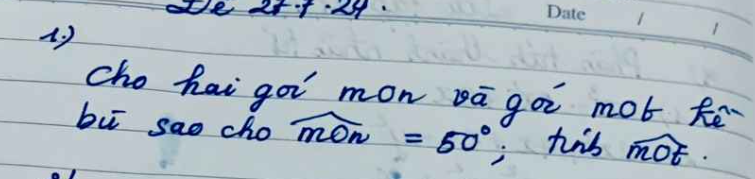 Đề 27.7.24.
Date / /
1.)
Cho hai goí mon và goí mot kề
bù sao cho mOn = 50°; tính mOt.